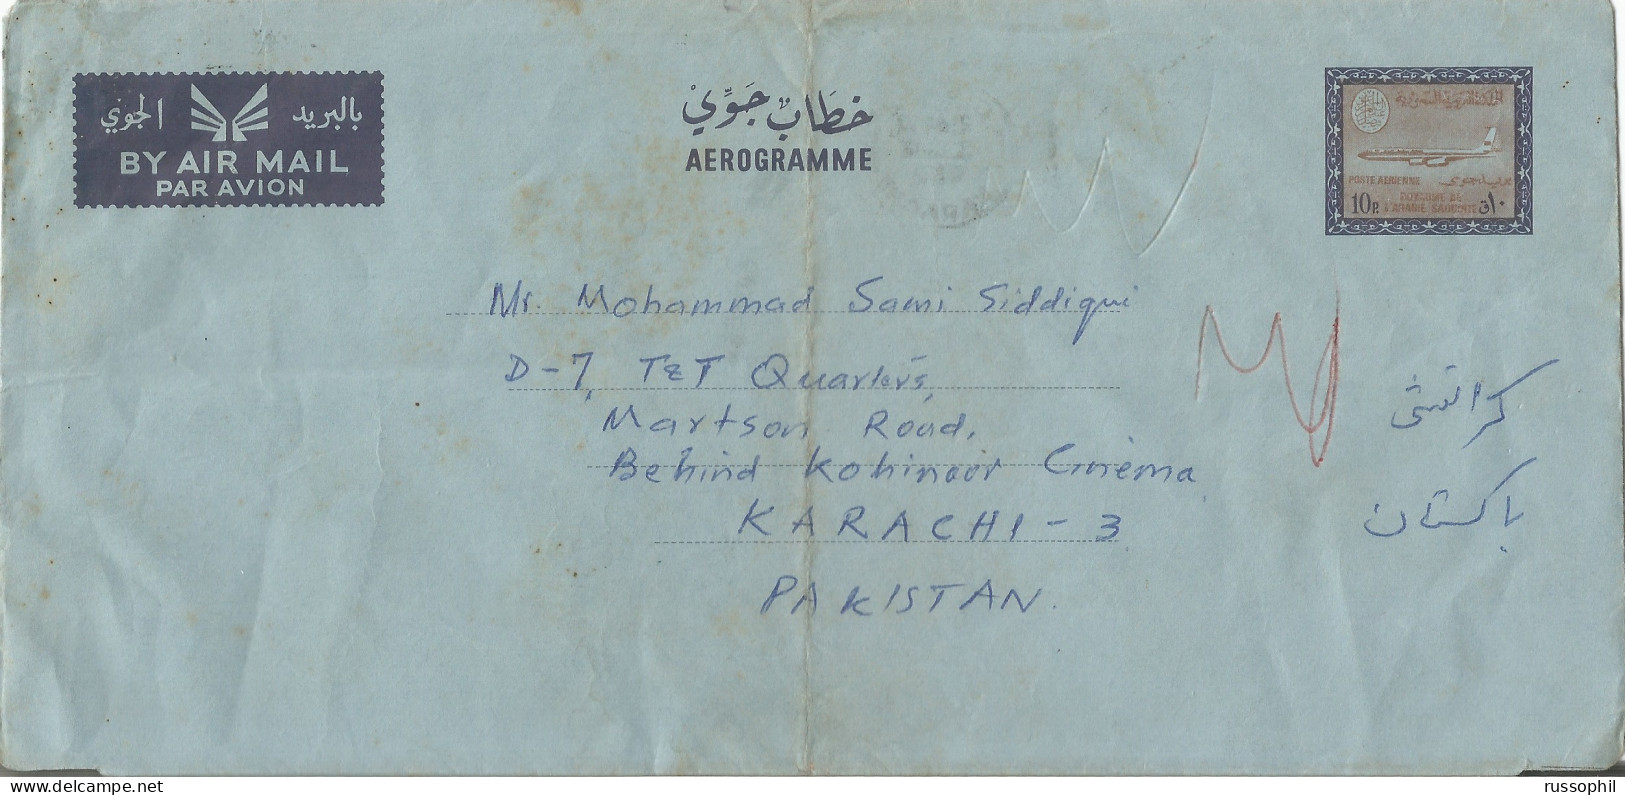 بالبريد الجوي
BY AIR MAIL
PAR AVION
خطاب جوي
AEROGRAMME
المملكة العربية السعودية
POSTE AERIENNE بريد جوي
ROYAUME DE
10 P. L'ARABIE SAOUDITE ١٠ ق
Mr. Mohammad Sami Siddiqui
D-7, T&T Quarters,
Martson Road,
Behind Kohinoor Cinema
KARACHI - 3
PAKISTAN.
كراتشى
باكستان
russophil